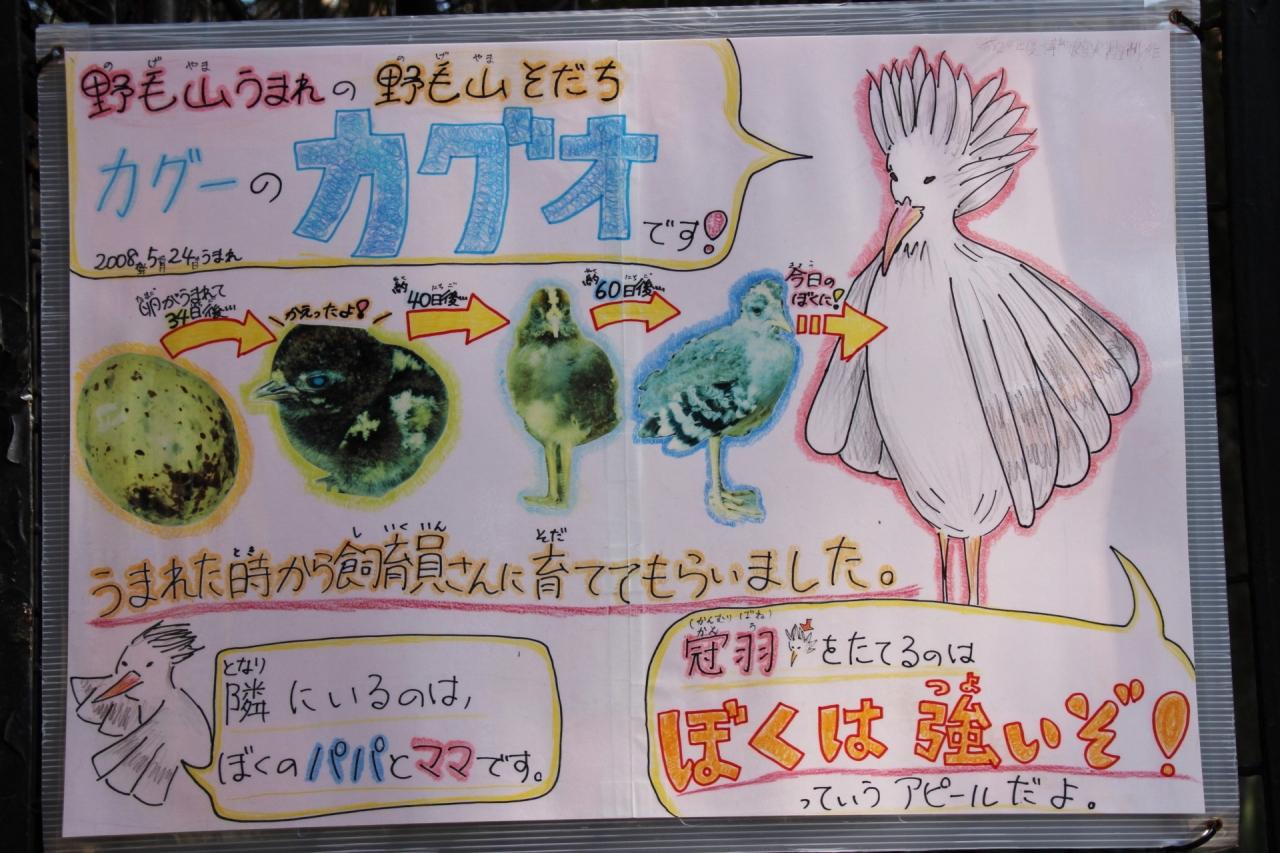 野毛山うまれの野毛山そだち
のげやま のげやま
カグーのカグオです!
2008年5月24日うまれ
卵がうまれて
たまご
34日後…
かえったよ!
約40日後…
やく にちご
約60日後…
やく にちご
今日の
きょう
ぼくに!
うまれた時から飼育員さんに育ててもらいました。
とき しいくいん そだ
隣にいるのは、
となり
ぼくのパパとママです。
冠羽をたてるのは
(かんむりばね)
かんう
ぼくは強いぞ!
つよ
っていうアピールだよ。